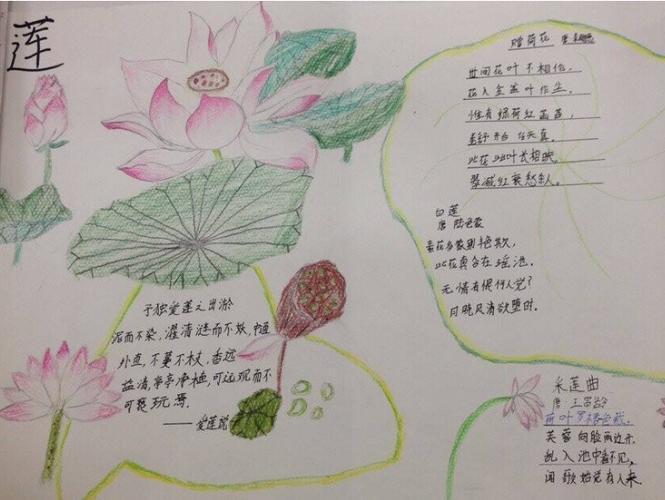 莲
赠荷花 唐
世间花叶不相伦，
花入金盆叶作尘。
惟有绿荷红菡萏，
卷舒开合任天真。
此花此叶长相映，
翠减红衰愁杀人。
白莲
唐 陆龟蒙
素花多蒙别艳欺，
此花真合在瑶池。
无情有恨何人觉？
月晓风清欲堕时。
予独爱莲之出淤
泥而不染，濯清涟而不妖，中通
外直，不蔓不枝，香远
益清，亭亭净植，可远观而不
可亵玩焉。
——爱莲说
采莲曲
唐·王昌龄
荷叶罗裙色裁，
芙蓉向脸两边开
乱入池中看不见，
闻歌始觉有人来